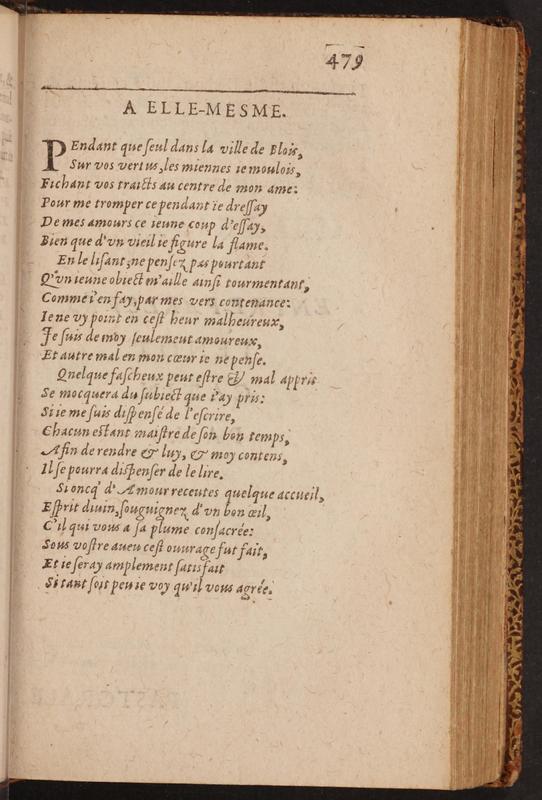 479
A ELLE-MESME.
PEndant que ſeul dans la ville de Blois,
Sur vos vertus, les miennes ie moulois,
Fichant vos traicts au centre de mon ame:
Pour me tromper cependant ie dreſſay
De mes amours ce ieune coup d'eſſay,
Bien que d'vn vieil ie figure la flame.
En le liſant, ne penſez pas pourtant
Q'vn ieune obiect m'aille ainſi tourmentant,
Comme i'en fay, par mes vers contenance:
Ie ne vy point en ceſt heur malheureux,
Je ſuis de moy ſeulement amoureux,
Et autre mal en mon cœur ie ne penſe.
Quelque faſcheux peut eſtre & mal appris
Se mocquera du ſubiect que i'ay pris:
Si ie me ſuis diſpenſé de l'eſcrire,
Chacun eſtant maiſtre de ſon bon temps,
Afin de rendre & luy, & moy contens,
Il ſe pourra diſpenſer de le lire.
Si oncq' d'Amour receutes quelque accueil,
Eſprit diuin, ſouguignez d'vn bon œil,
C'il qui vous a ſa plume conſacrée:
Sous voſtre aueu ceſt ouurage fut fait,
Et ie ſeray amplement ſatisfait
Si tant ſoit peu ie voy qu'il vous agrée.